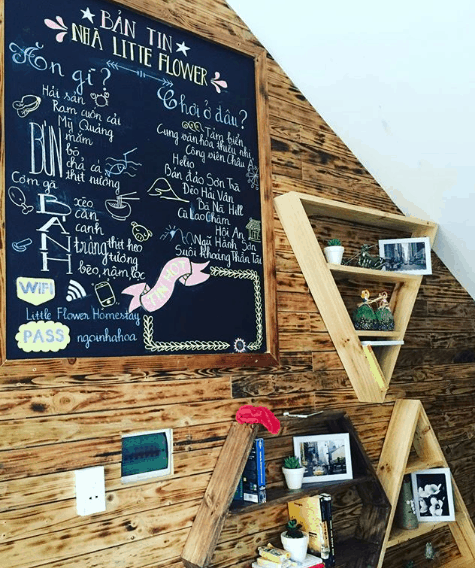 BẢN TIN
NHÀ LITTE FLOWER
Ăn gì?
Hải sản
Ram cuốn cải
Mỳ Quảng
BÚN
mắm
bò
chả cá
thịt nướng
Cơm gà
BÁNH
xèo
căn
canh
tráng thịt heo
tướng
bèo, nậm, lọc
WIFI
Little Flower Homestay
PASS
ngoinhahoa
Chơi ở đâu?
Tắm biển
Cung văn hóa thiếu nhi
Công viên Châu Á
Helio
Bán đảo Sơn Trà
Đèo Hải Vân
Bà Nà Hill
Cù Lao Chàm
Hội An
Ngũ Hành Sơn
Suối Khoáng Thần Tài